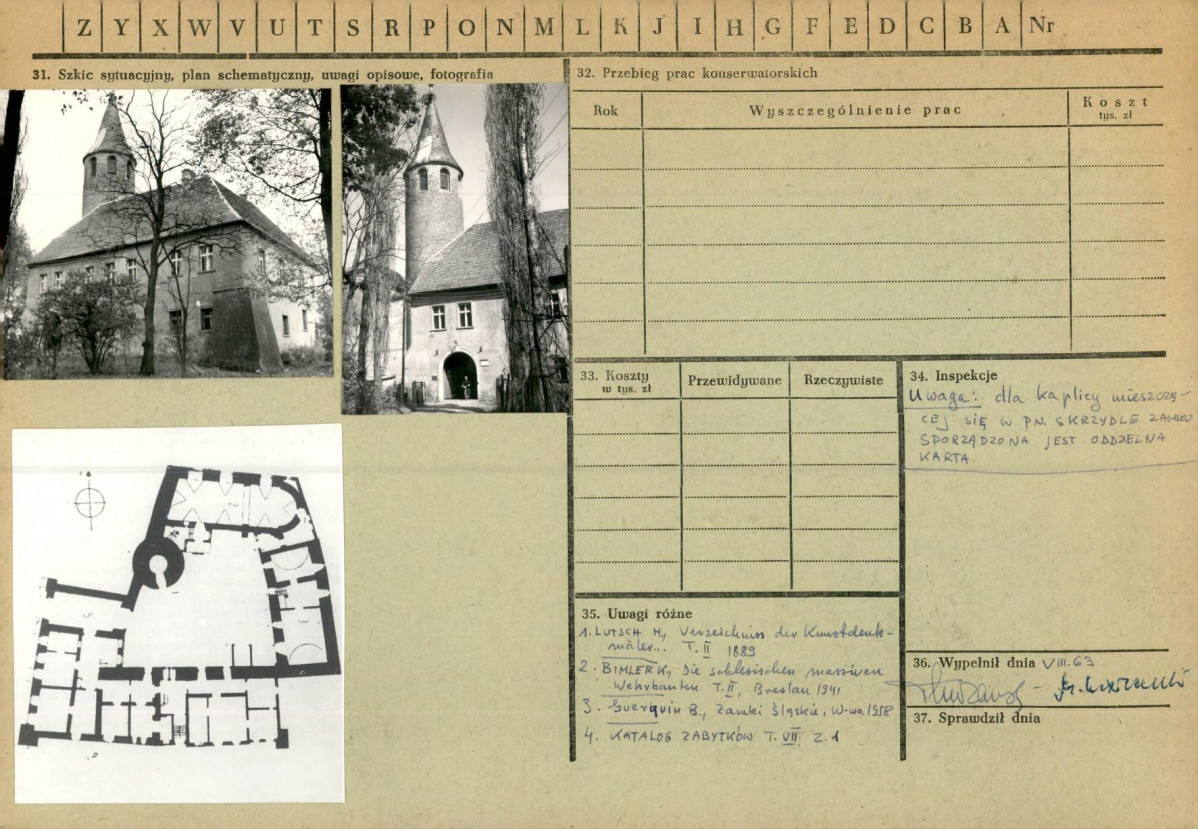 Z Y X W V U T S R P O N M L K J I H G F E D C B A Nr
31. Szkic sytuacyjny, plan schematyczny, uwagi opisowe, fotografia
32. Przebieg prac konserwatorskich
Rok
Wyszczególnienie prac
Koszt
tys. zł
33. Koszty
w tys. zł
Przewidywane
Rzeczywiste
34. Inspekcje
Uwaga: dla kaplicy mieszczą-
cej SIĘ W PN. SKRZYDLE ZAMKU
SPORZĄDZONA JEST ODDZIELNA
KARTA
35. Uwagi różne
1. LUTSCH H., Verzeichniss der Kunstdenk-
mäler... T. II 1889
2. BIMLER K., Die schlesischen massiven
Wehrbauten T. II, Breslau 1941
3. Guerquin B., Zamki Śląskie, W-wa 1958
4. KATALOG ZABYTKÓW T. VII Z. 1
36. Wypełnił dnia VIII.63
37. Sprawdził dnia